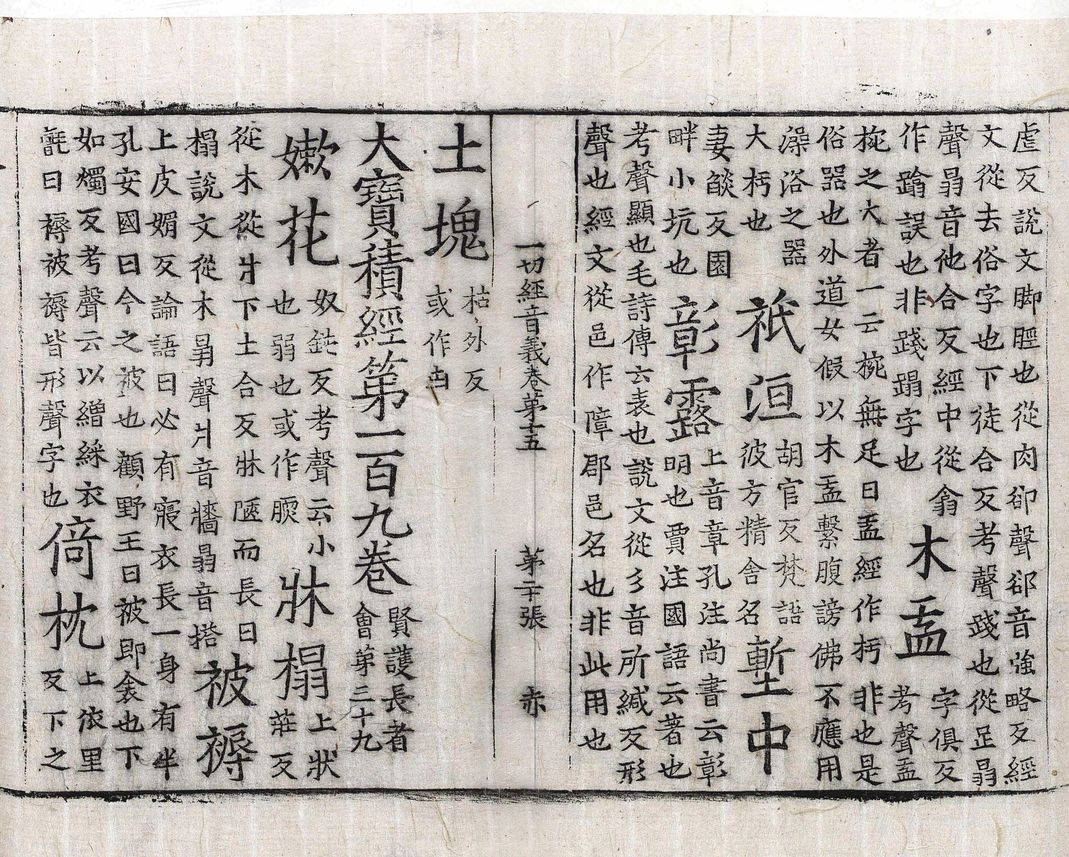 虐反說文脚脛也從肉卻聲卻音強略反經
文從去俗字也下徒合反考聲踐也從足𦐇
聲𦐇音他合反經中從翕
作蹹誤也非踐蹋字也
木盂
字俱反
考聲盂
椀之大者一云椀無足曰盂經作杇非也是
俗器也外道女假以木盂繫腹謗佛不應用
澡浴之器
大杇也
祇洹
胡官反梵語
彼方精舍名
塹中
妻燄反園
畔小坑也
彰露
上音章孔注尚書云彰
明也賈注國語云著也
考聲顯也毛詩傳云表也說文從彡音所緘反形
聲也經文從邑作鄣郡邑名也非此用也
一切經音義卷第十五
第二十張
赤
土塊
枯外反
或作凷
大寶積經第一百九卷
賢護長者
會第三十九
嫰花
奴鈍反考聲云小
也弱也或作腝
牀榻
上狀
莊反
從木從爿下土合反牀陿而長曰
榻說文從木𦐇聲爿音牆𦐇音塔
被褥
上皮媚反論語曰必有寢衣長一身有半
孔安國曰今之被也顧野王曰被即衾也下
如燭反考聲云以繒綵衣
氈曰褥被褥皆形聲字也
倚枕
上依里
反下之